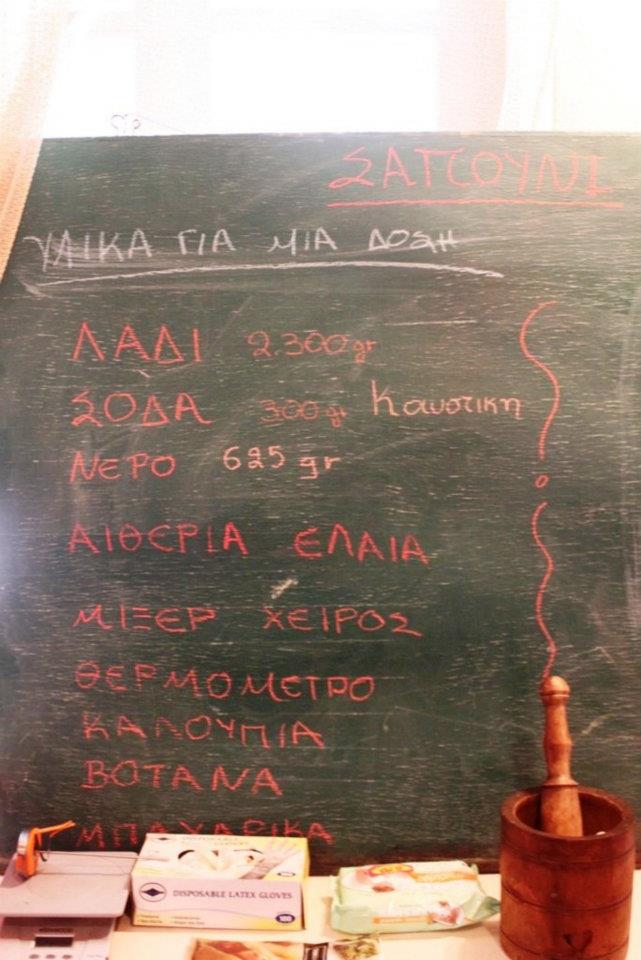 ΣΑΠΟΥΝΙ
ΥΛΙΚΑ ΓΙΑ ΜΙΑ ΔΟΣΗ
ΛΑΔΙ 2.300gr
ΣΟΔΑ 300gr Καυστικη
ΝΕΡΟ 625 gr
ΑΙΘΕΡΙΑ ΕΛΑΙΑ
ΜΙΞΕΡ ΧΕΙΡΟΣ
ΘΕΡΜΟΜΕΤΡΟ
ΚΑΛΟΥΠΙΑ
ΒΟΤΑΝΑ
ΜΠΑΧΑΡΙΚΑ
DISPOSABLE LATEX GLOVES
100